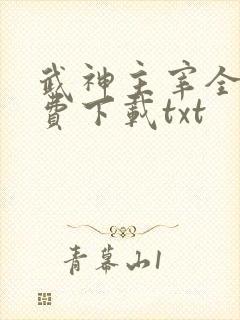 武神主宰全
費下載txt
青幕山1